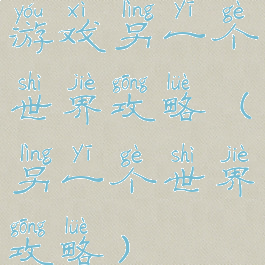 yóu xì lìng yī gè
游戏另一个
shì jiè gōng lüè
世界攻略(
lìng yī gè shì jiè
另一个世界
gōng lüè
攻略)